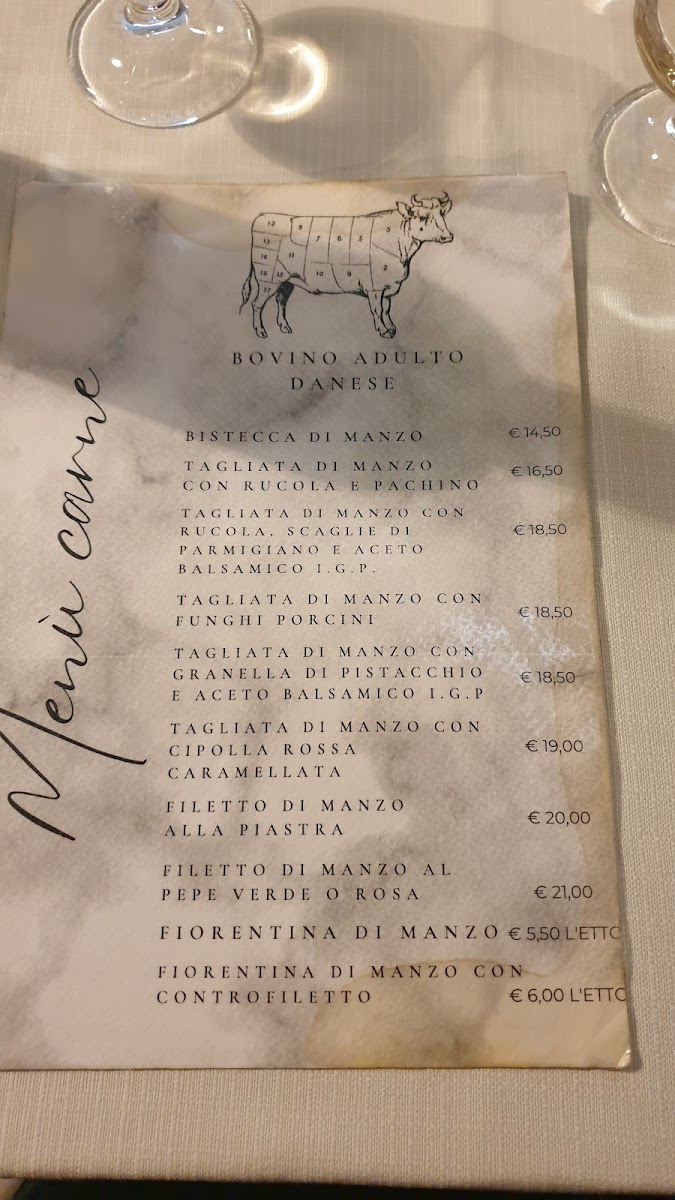 BOVINO ADULTO
DANESE
Menù carne
BISTECCA DI MANZO € 14,50
TAGLIATA DI MANZO
CON RUCOLA E PACHINO € 16,50
TAGLIATA DI MANZO CON
RUCOLA, SCAGLIE DI € 18,50
PARMIGIANO E ACETO
BALSAMICO I.G.P.
TAGLIATA DI MANZO CON
FUNGHI PORCINI € 18,50
TAGLIATA DI MANZO CON
GRANELLA DI PISTACCHIO € 18,50
E ACETO BALSAMICO I.G.P
TAGLIATA DI MANZO CON
CIPOLLA ROSSA € 19,00
CARAMELLATA
FILETTO DI MANZO
ALLA PIASTRA € 20,00
FILETTO DI MANZO AL
PEPE VERDE O ROSA € 21,00
FIORENTINA DI MANZO € 5,50 L'ETTO
FIORENTINA DI MANZO CON
CONTROFILETTO € 6,00 L'ETTO